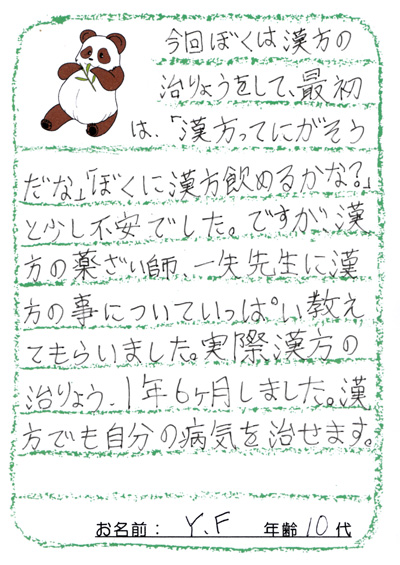 今回ぼくは漢方の
治りょうをして、最初
は、「漢方ってにがそう
だな」「ぼくに漢方飲めるかな?」
と少し不安でした。ですが、漢
方の薬ざい師、一矢先生に漢
方の事についていっぱい教え
てもらいました。実際漢方の
治りょう、1年6ヶ月しました。漢
方でも自分の病気を治せます。
お名前: Y.F 年齢10代